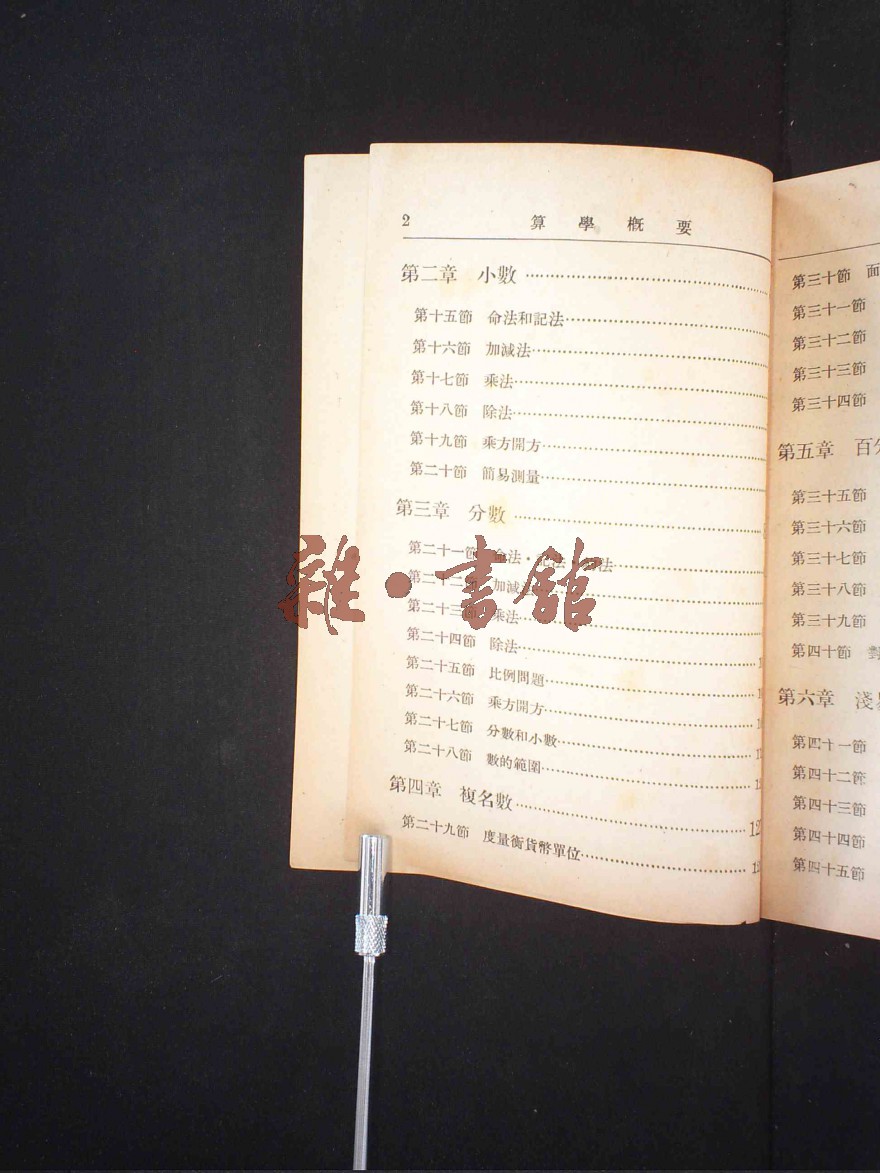 2 算學概要
第二章 小數
第十五節 命法和記法
第十六節 加減法
第十七節 乘法
第十八節 除法
第十九節 乘方開方
第二十節 簡易測量
第三章 分數
第二十一節 命法·記法·
第二十二節 加減法
第二十三節 乘法
第二十四節 除法
第二十五節 比例問題
第二十六節 乘方開方
第二十七節 分數和小數
第二十八節 數的範圍
第四章 複名數
第二十九節 度量衡貨幣單位
第三十節 面
第三十一節
第三十二節
第三十三節
第三十四節
第五章 百
第三十五節
第三十六節
第三十七節
第三十八節
第三十九節
第四十節
第六章 淺
第四十一節
第四十二節
第四十三節
第四十四節
第四十五節
雜·書館